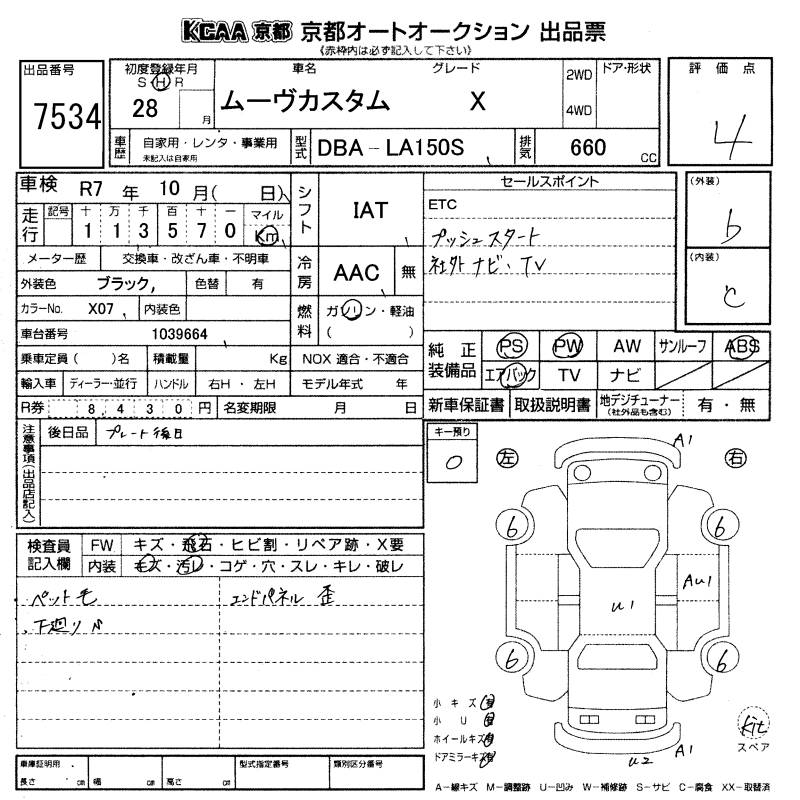 KCAA 京都 京都オートオークション 出品票
《赤枠内は必ず記入して下さい》
出品番号
7534
初度登録年月
S・H・R
28 月
車名 グレード
ムーヴカスタム X
2WD
4WD
ドア・形状
評価点
4
車歴
自家用・レンタ・事業用
未記入は自家用
型式 DBA－LA150S
排気 660 CC
車検 R7 年 10 月( 日)
走行 記号 十 万 千 百 十 一
1 1 3 5 7 0
マイル
Km
シフト IAT
セールスポイント
ETC
プッシュスタート
社外ナビ・TV
(外装)
b
(内装)
c
メーター歴 交換車・改ざん車・不明車
外装色 ブラック, 色替 有
冷房 AAC 無
カラーNo. X07 内装色
燃料 ガソリン・軽油
( )
車台番号 1039664
乗車定員( )名 積載量 Kg NOX 適合・不適合
輸入車 ディーラー・並行 ハンドル 右H・左H モデル年式 年
R券 8,430円 名変期限 月 日
純正装備品 PS PW AW サンルーフ ABS
エアバック TV ナビ
新車保証書 取扱説明書 地デジチューナー 有・無
(社外品も含む)
注意事項(出品店記入)
後日品 プレート後日
キー預り
0
左 右
A1
6 6
Au1
u1
6 6
検査員記入欄
FW キズ・飛石・ヒビ割・リペア跡・X要
内装 キズ・汚レ・コゲ・穴・スレ・キレ・破レ
・ペット毛 エンドパネル 歪
・下廻りサ
小キズ 有
小U 有
ホイールキズ 有
ドアミラーキズ 有
u2 A1
kit
スペア
車庫証明用
長さ cm 幅 cm 高さ cm
型式指定番号 類別区分番号
A－線キズ M－調整跡 U－凹み W－補修跡 S－サビ C－腐食 XX－取替済